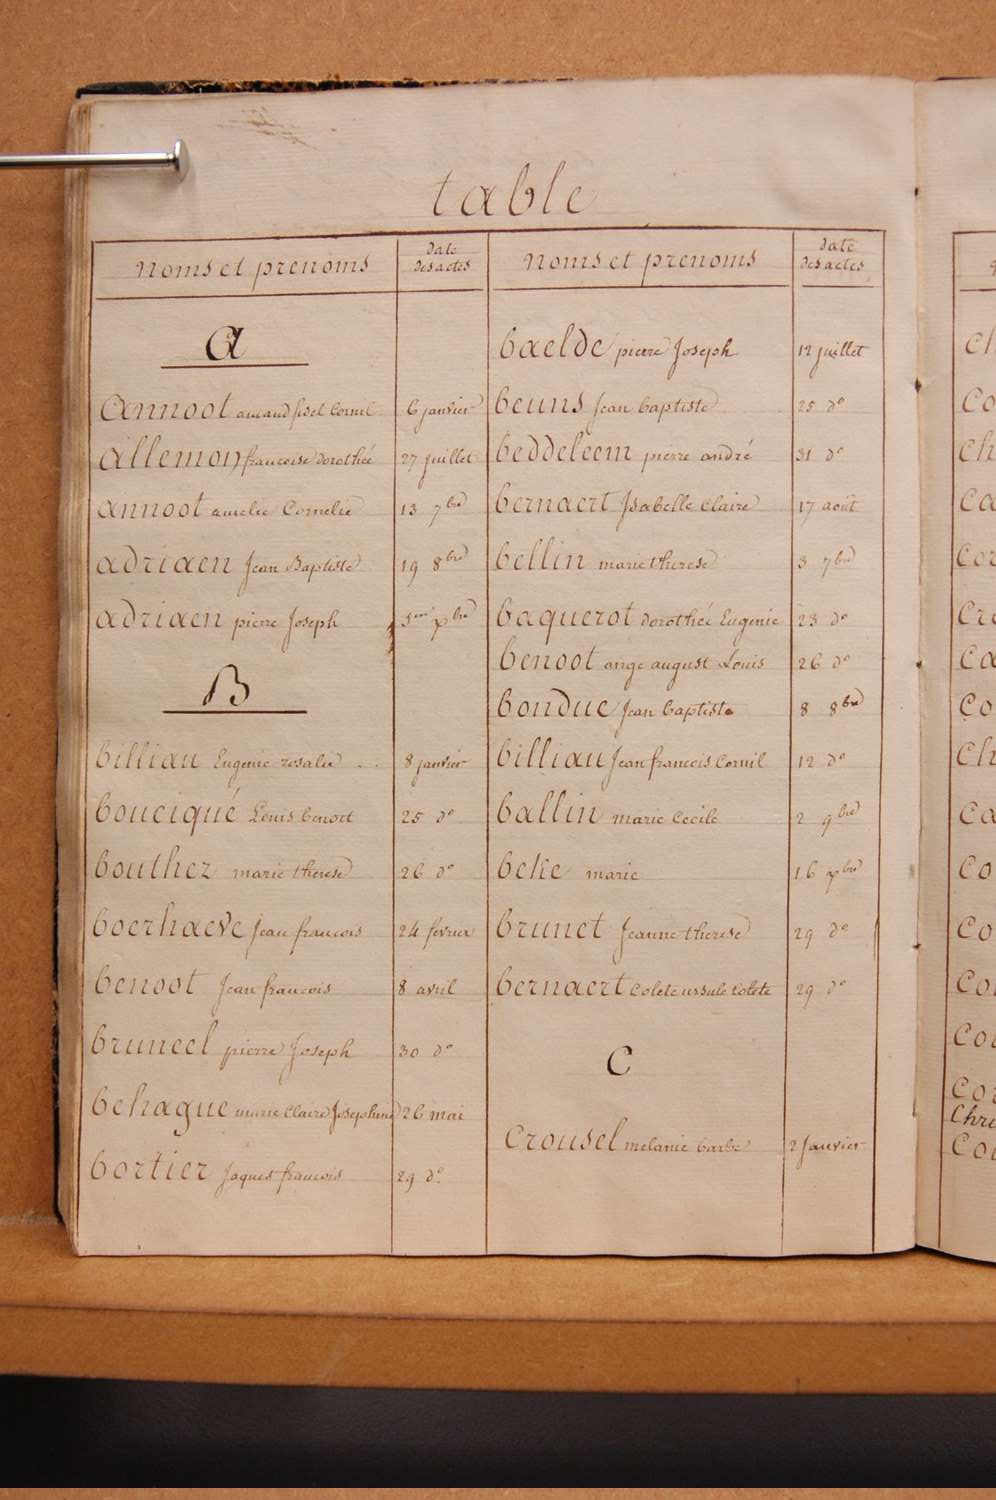 table
noms et prenoms
date
des actes
A
annoot amand fidel Cornil 6 janvier
allemon francoise dorothée 27 juillet
annoot amelie Cornelie 13 7bre
adriaen Jean Baptiste 19 8bre
adriaen pierre Joseph xbre
B
billiau Eugenie rosalie 8 janvier
bouciqué Louis benoit 25 do
bouthez marie therese 26 do
boerhaeve Jean francois 24 fevrier
benoot Jean francois 8 avril
bruneel pierre Joseph 30 do
behague marie Claire Josephine 26 mai
bortier Jaques francois 29 do
noms et prenoms
date
des actes
baelde pierre Joseph 12 juillet
beuns Jean baptiste 25 do
beddeleem pierre andré 31 do
bernaert Isabelle Claire 17 août
bellin marie therese 3 7bre
baquerot dorothée Eugenie 23 do
benoot ange august Louis 26 do
bonduc Jean baptiste 8 8bre
billiau Jean francois Cornil 12 do
ballin marie Cecile 2 9bre
beke marie 16 xbre
brunet Jeanne therese 29 do
bernaert Colete ursule Colete 29 do
C
Crousel melanie barbe 2 Janvier
ch
co
ch
ca
cor
cre
ca
co
ch
ca
co
co
co
cou
cor
chri
cou